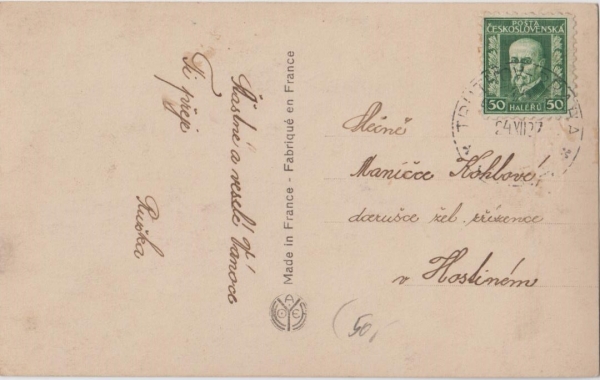 Šťastné a veselé vánoce
Ti přeje
Ruška
Made in France - Fabriqué en France
POŠTA
ČESKOSLOVENSKÁ
50 HALÉŘŮ 50
24 VII 27
Slečně
Maničce Kohlové
žel. zřízence
v Hostinném
50,